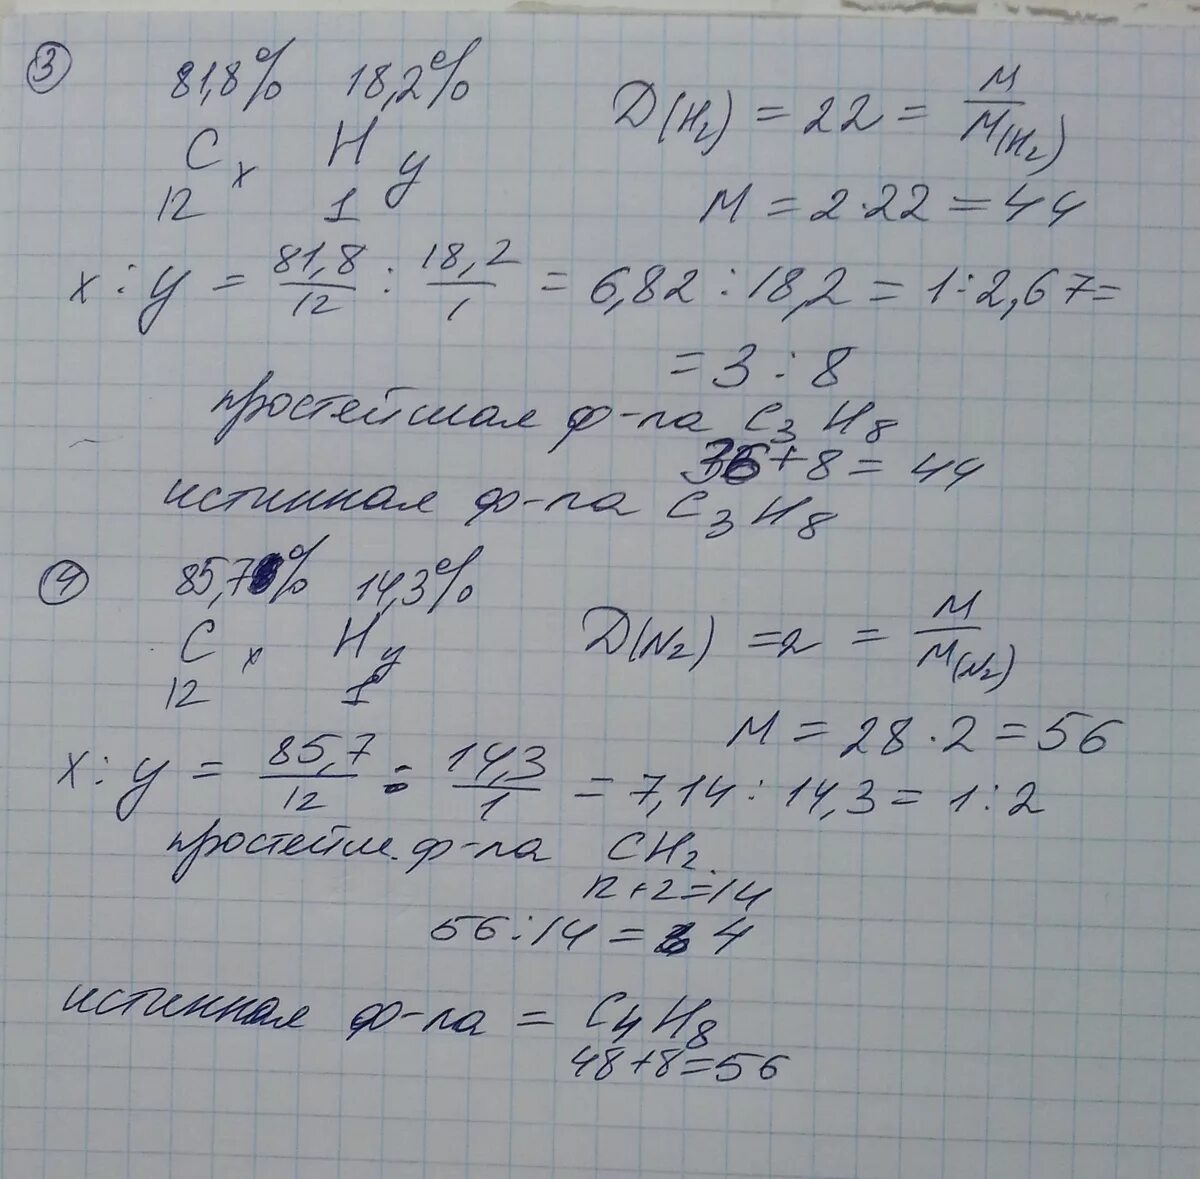 ③ 81,8% 18,2% D(H₂) = 22 = M/M(H₂)
Cₓ Hᵧ
12 1 M = 2·22 = 44
x : y = 81,8/12 : 18,2/1 = 6,82 : 18,2 = 1 : 2,67 =
= 3 : 8
простейшая ф-ла C₃H₈
36 + 8 = 44
истинная ф-ла C₃H₈
④ 85,7% 14,3% D(N₂) = 2 = M/M(N₂)
Cₓ Hᵧ
12 1 M = 28·2 = 56
x : y = 85,7/12 : 14,3/1 = 7,14 : 14,3 = 1 : 2
простейш. ф-ла CH₂
12 + 2 = 14
56 : 14 = 4
истинная ф-ла = C₄H₈
48 + 8 = 56